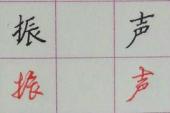 振 声
振 声